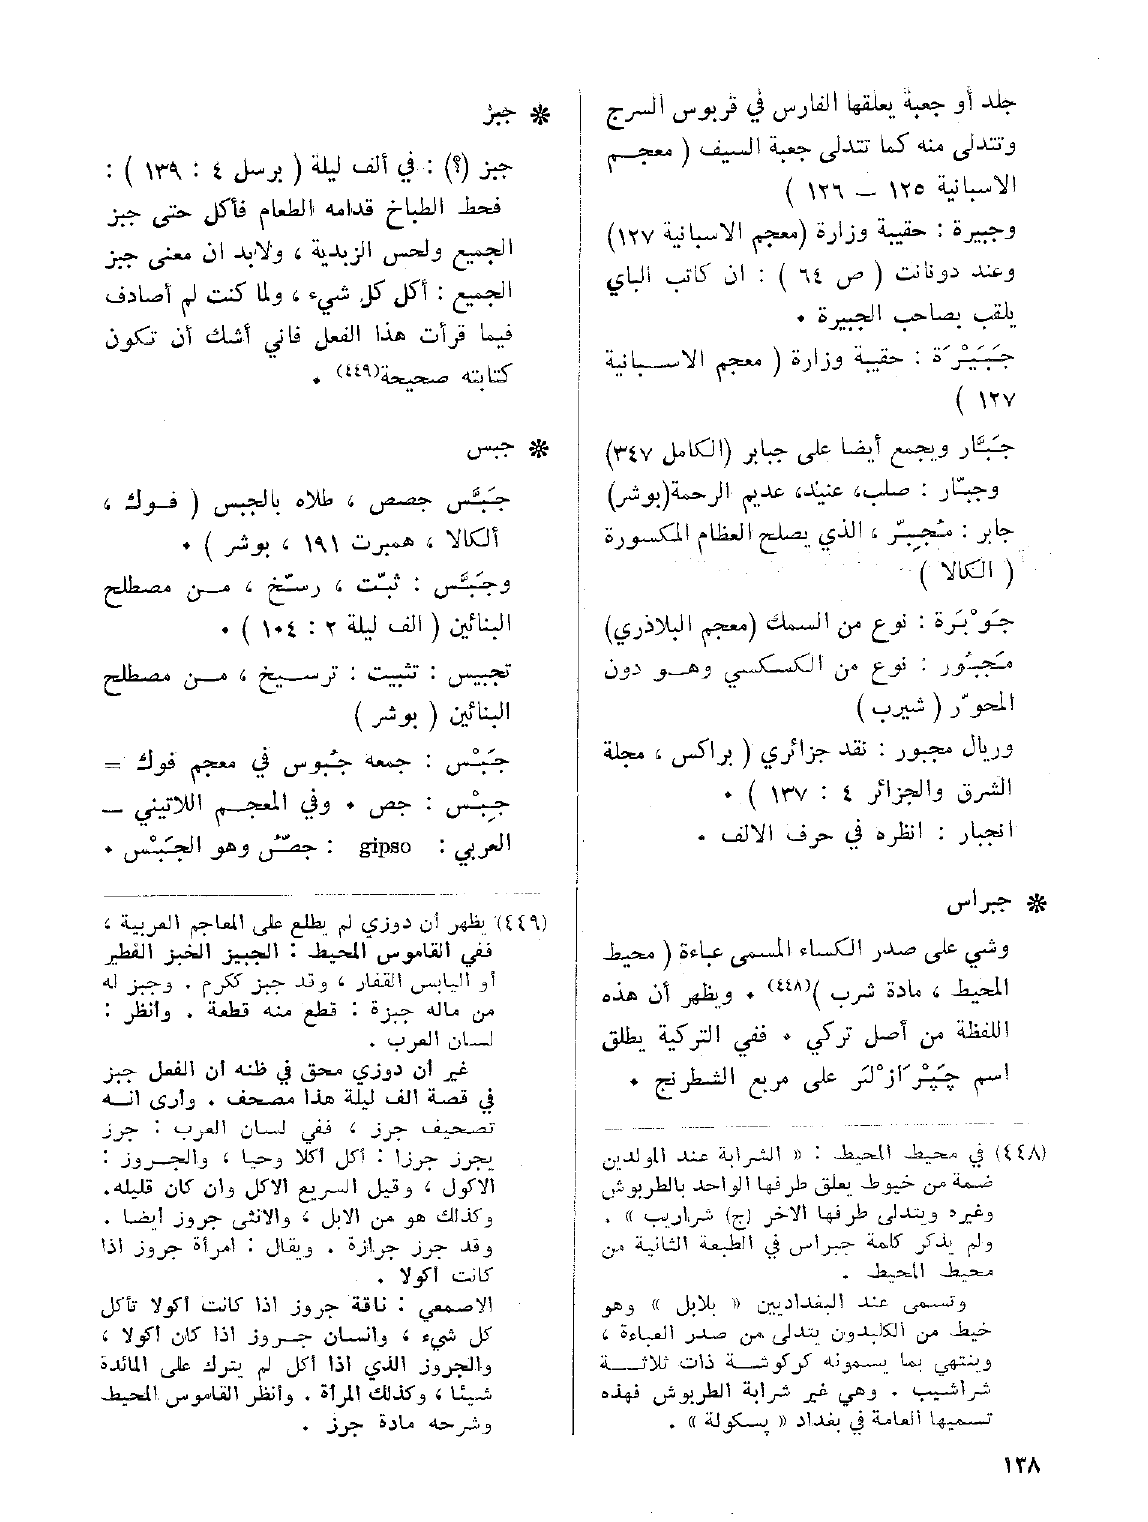 جلد أو جعبة يعلقها الفارس في قربوس السرج
وتتدلى منه كما تتدلى جعبة السيف ( معجم
الاسبانية ١٢٥ – ١٢٦ )
وجبيرة : حقيبة وزارة (معجم الاسبانية ١٢٧)
وعند دونانت ( ص ٦٤ ) : ان كاتب الباي
يلقب بصاحب الجبيرة .
جَبَيْرَة : حقيبة وزارة ( معجم الاسبانية
١٢٧ )
جَبَّار ويجمع أيضا على جبابر (الكامل ٣٤٧)
وجبّار : صلب، عنيد، عديم الرحمة(بوشر)
جابر : مُجَبِرّ ، الذي يصلح العظام المكسورة
( الكالا )
جَوْبَرة : نوع من السمك (معجم البلاذري)
مَجبُور : نوع من الكسكسي وهو دون
المحوّر ( شيرب )
وريال مجبور : نقد جزائري ( براكس ، مجلة
الشرق والجزائر ٤ : ١٣٧ ) .
انجبار : انظره في حرف الالف .
* جبراس
وشي على صدر الكساء المسمى عباءة ( محيط
المحيط ، مادة شرب )(٤٤٨) . ويظهر أن هذه
اللفظة من أصل تركي . ففي التركية يطلق
اسم چَپْرَازْلَر على مربع الشطرنج .
(٤٤٨) في محيط المحيط : « الشرابة عند المولدين
ضمة من خيوط يعلق طرفها الواحد بالطربوش
وغيره ويتدلى طرفها الاخر (ج) شراريب » .
ولم يذكر كلمة جبراس في الطبعة الثانية من
محيط المحيط .
وتسمى عند البغداديين « بلابل » وهو
خيط من الكلبدون يتدلى من صدر العباءة ،
وينتهي بما يسمونه كركوشة ذات ثلاثة
شراشيب . وهي غير شرابة الطربوش فهذه
تسميها العامة في بغداد « پسكولة » .
* جبز
جبز (؟) : في ألف ليلة ( برسل ٤ : ١٣٩ ) :
فحط الطباخ قدامه الطعام فأكل حتى جبز
الجميع ولحس الزبدية ، ولابد ان معنى جبز
الجميع : أكل كل شيء ، ولما كنت لم أصادف
فيما قرأت هذا الفعل فاني أشك أن تكون
كتابته صحيحة(٤٤٩) .
* جبس
جَبَّس جصص ، طلاه بالجبس ( فوك ،
ألكالا ، همبرت ١٩١ ، بوشر ) .
وجَبَّس : ثبّت ، رسّخ ، من مصطلح
البنائين ( الف ليلة ٢ : ١٠٤ ) .
تجبيس : تثبيت : ترسيخ ، من مصطلح
البنائين ( بوشر )
جَبْس : جمعه جُبوس في معجم فوك =
جِبْس : جص . وفي المعجم اللاتيني –
العربي : gipso : جصّ وهو الجَبْس .
(٤٤٩) يظهر أن دوزي لم يطلع على المعاجم العربية ،
ففي القاموس المحيط : الجبيز الخبز الفطير
أو اليابس القفار ، وقد جبز ككرم . وجبز له
من ماله جبزة : قطع منه قطعة . وأنظر :
لسان العرب .
غير أن دوزي محق في ظنه أن الفعل جبز
في قصة الف ليلة هذا مصحف . وأرى انه
تصحيف جرز ، ففي لسان العرب : جرز
يجرز جرزا : أكل أكلا وحيا ، والجروز :
الاكول ، وقيل السريع الاكل وان كان قليله.
وكذلك هو من الابل ، والانثى جروز أيضا .
وقد جرز جرازة . ويقال : امرأة جروز اذا
كانت أكولا .
الاصمعي : ناقة جروز اذا كانت أكولا تأكل
كل شيء ، وانسان جروز اذا كان أكولا ،
والجروز الذي اذا أكل لم يترك على المائدة
شيئا ، وكذلك المرأة . وانظر القاموس المحيط
وشرحه مادة جرز .
١٣٨